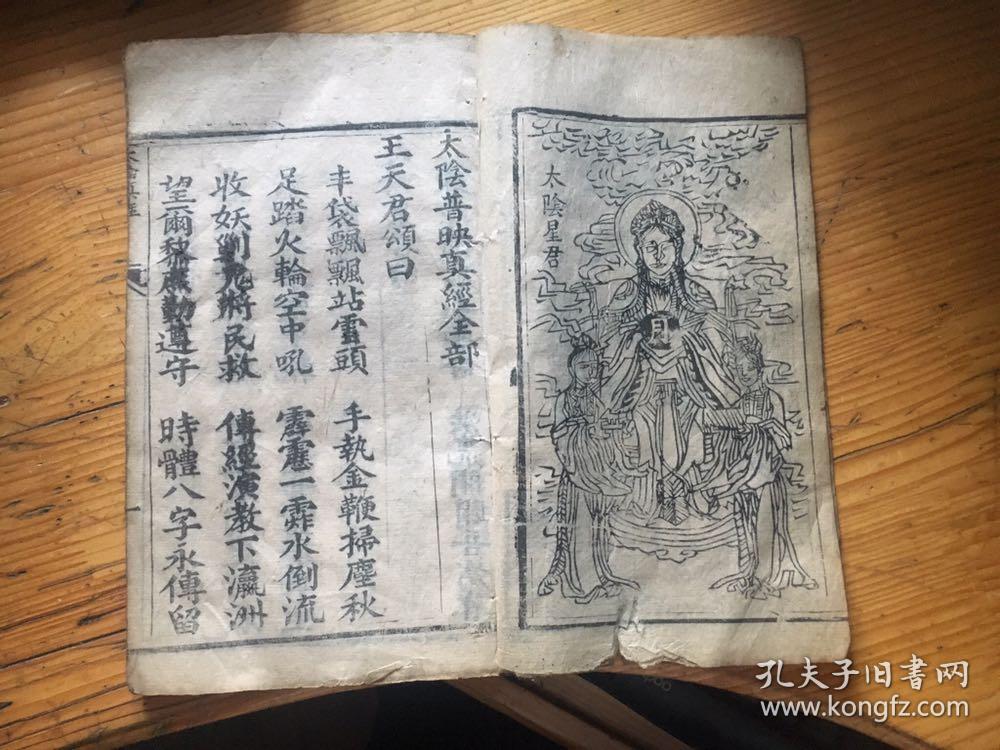 太陰星君
月
太陰普映真經全部
王天君頌曰
丰袋飄飄站雲頭　手執金鞭掃塵秋
足踏火輪空中吼　霹靂一水倒流
收妖剿將民救　傳經演教下瀛洲
望爾黎庶勤遵守　時體八字永傳留
孔夫子旧書网
www.kongfz.com